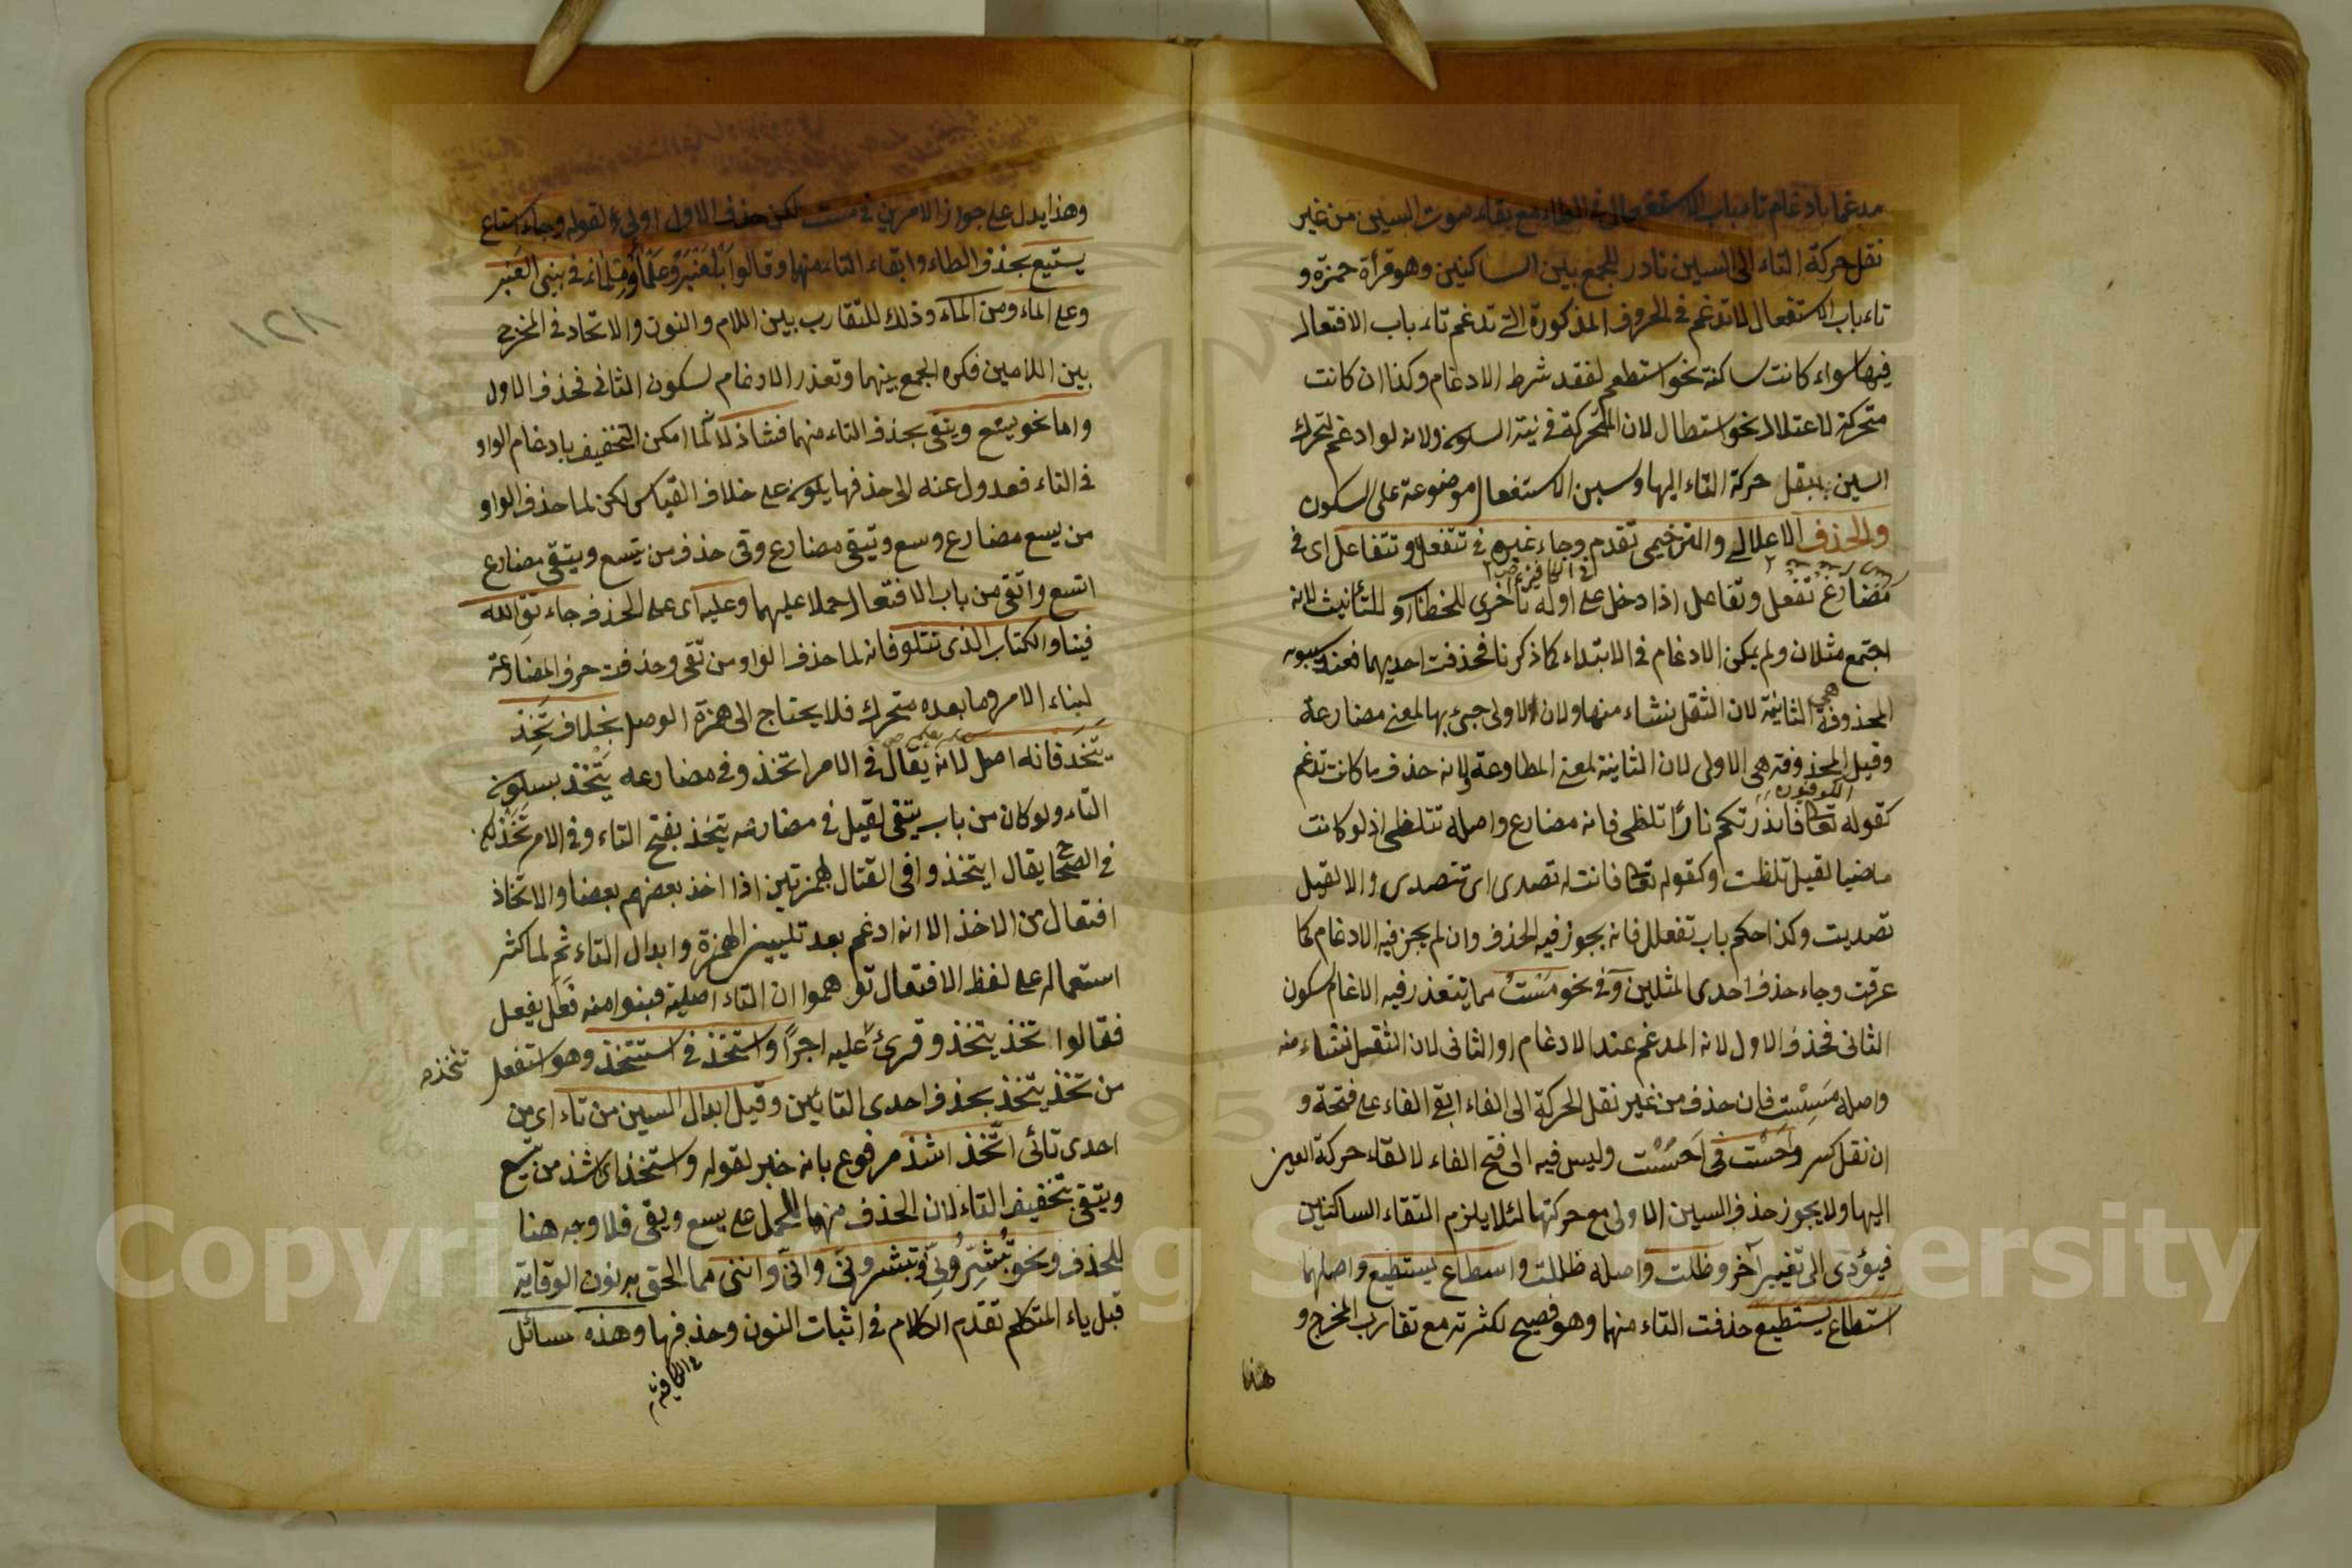 مدغما بادغام تاء باب الاستفعال في الطاء مع بقاء صوت السين من غير
نقل حركة التاء الى السين نادر للجمع بين الساكنين وهو قرأة حمزة و
تاء باب الاستفعال لا تدغم في الحروف المذكورة التي تدغم تاء باب الافتعال
فيها سواء كانت ساكنة نحو استطعم لفقد شرط الادغام وكذا ان كانت
متحركة لاعتلال نحو استطال لان المتحركة في نية السكون ولانه لو ادغم لتحرك
السين بنقل حركة التاء اليها وسين الاستفعال موضوعة على السكون
والحذف الاعلالي والترخيمي تقدم وجاء غيره في تتفعل وتتفاعل اى في
مضارع تفعل وتفاعل اذا دخل على اوله تاء اخرى للخطاب او للتأنيث لانه
اجتمع مثلان ولم يمكن الادغام في الابتداء كما ذكرنا فحذفت احديهما فعند سيبويه
المحذوفة هي الثانية لان الثقل نشاء منها ولان الاولى جيئ بها لمعنى مضارعة
وقيل المحذوفة هي الاولى لان الثانية لمعنى المطاوعة ولانه حذف ما كانت تدغم
الكوفيون
كقوله تعالى فانذرتكم نارا تلظى فانه مضارع واصله تتلظى اذ لو كانت
ماضيا لقيل تلظت وكقوله تعالى فانت له تصدى اى تتصدى والا لقيل
تصديت وكذا حكم باب تفعلل فانه يجوز فيه الحذف وان لم يجز فيه الادغام كما
عرفت وجاء حذف احدى المثلين في نحو مست مما يتعذر فيه الادغام لسكون
الثاني فحذف الاول لانه المدغم عند الادغام او الثاني لان الثقيل نشاء منه
واصله مسست فان حذف من غير نقل الحركة الى الفاء ابقى الفاء على فتحة و
ان نقل كسر واحست في احسست وليس فيه الا فتح الفاء لالقاء حركة العين
اليها ولا يجوز حذف السين الاولى مع حركتها لئلا يلزم التقاء الساكنين
فيؤدى الى تغيير آخر وظلت واصله ظللت واسطاع يسطيع واصلهما
استطاع يستطيع حذفت التاء منهما وهو فصيح لكثرته مع تقارب المخرج و
هذا
وهذا يدل على جواز الامرين في مست لكن حذف الاول اولى لقوله وجاء استاع
يستيع بحذف الطاء وابقاء التاء منهما وقالوا بلعنبر وعلماء وملماء في بني العنبر
وعلى الماء ومن الماء وذلك للتقارب بين اللام والنون والاتحاد في المخرج
بين اللامين فكره الجمع بينهما وتعذر الادغام لسكون الثاني فحذف الاول
واما نحو يتسع ويتقى بحذف التاء منهما فشاذ لانه لما امكن التخفيف بادغام الواو
في التاء فعدول عنه الى حذفها يكون على خلاف القياس لكن لما حذف الواو
من يسع مضارع وسع وتيقى مضارع وقى حذف من يتسع ويتقى مضارع
اتسع واتقى من باب الافتعال حملا عليهما وعليه اى على الحذف جاء تق الله
فينا والكتاب الذى تتلو فانه لما حذف الواو من تقى وحذفت حرف المضارعة
لبناء الامر وما بعده متحرك فلا يحتاج الى همزة الوصل بخلاف تخذ
يتخذ فانه اصل لانه يقال في الامر اتخذ وفي مضارعه يتخذ بسكون
التاء ولو كان من باب يتقى لقيل في مضارعه يتخذ بفتح التاء وفي الامر تخذ
في الصحاح يقال ايتخذوا في القتال بهمزتين اذا اخذ بعضهم بعضا والاتخاذ
افتعال من الاخذ الا انه ادغم بعد تليين الهمزة وابدال التاء ثم لما كثر
استعماله على لفظ الافتعال توهموا ان التاء اصلية فبنوا منه فعل يفعل
فقالوا تخذ يتخذ وقرئ عليه اجرا واستخذ في استتخذ وهو استفعل
تتخذ
من تخذ يتخذ بحذف احدى التائين وقيل ابدال السين من تاء اى من
احدى تائى اتخذ اشذ مرفوع بانه خبر لقوله واستخذ اى اشذ من يتسع
ويتقى بتخفيف التاء لان الحذف منهما للحمل على يسع ويقى فلا وجه هنا
للحذف ونحو تبشرونى وتبشروننى وانى واننى مما الحق به نون الوقاية
قبل ياء المتكلم تقدم الكلام في اثبات النون وحذفها وهذه مسائل
في الكافية
١٢٨
Copyright © King Saud University